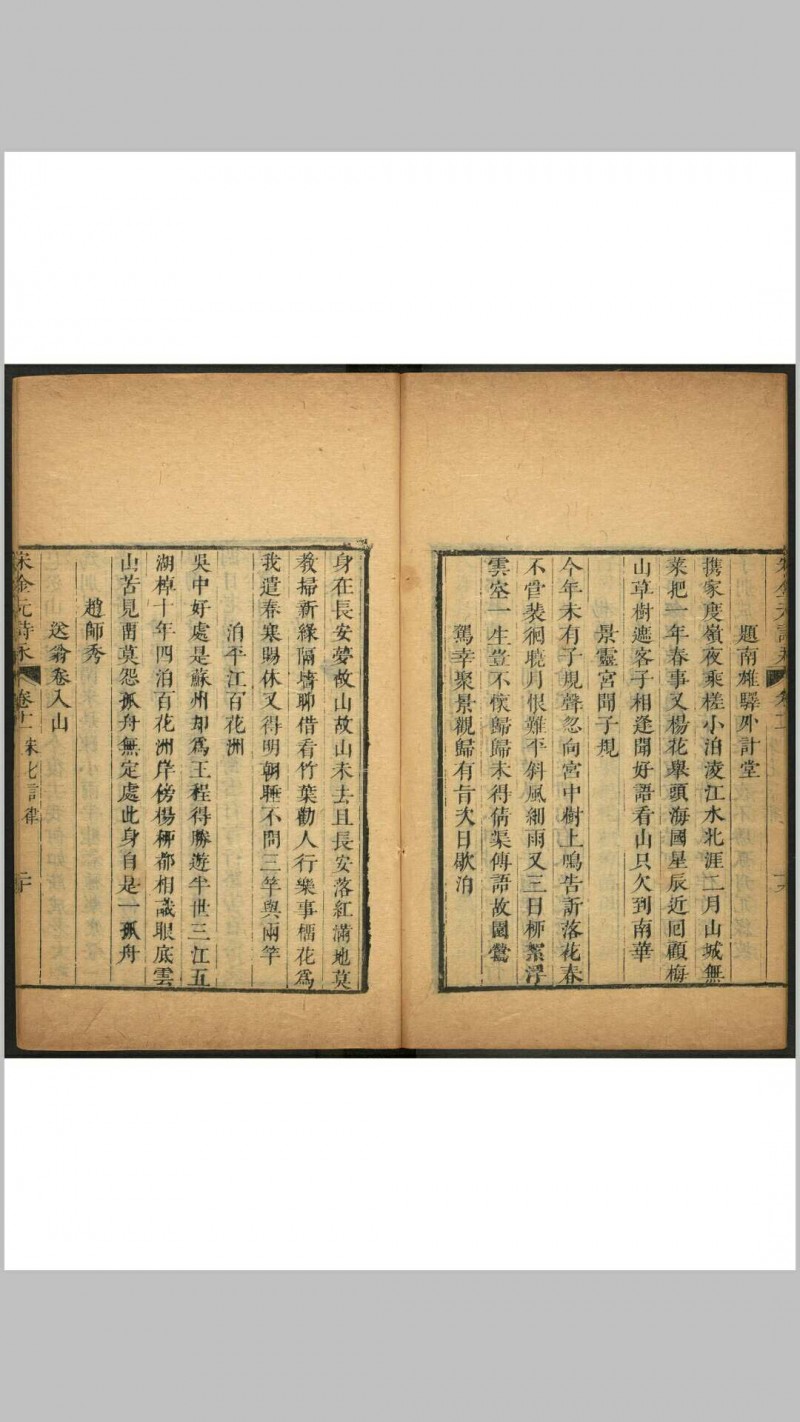 題南雄驛外計堂
携家度嶺夜乘槎小泊淩江水北涯二月山城無
菜把一年春事又楊花舉頭海國星辰近囘顧梅
山草樹遮客子相逢聞好語看山只欠到南華
景靈宮聞子規
今年未有子規聲忽向宮中樹上鳴告訢落花春
不管裴徊曉月恨難平斜風細雨又三日柳絮浮
雲空一生豈不懷歸歸未得倩渠傳語故園鶯
駕幸聚景觀歸有旨次日歇泊
身在長安夢故山故山未去且長安落紅滿地莫
教掃新綠隔墻聊借看竹葉勸人行樂事檽花為
我遣春寒賜休又得明朝睡不問三竿與兩竿
泊平江百花洲
吳中好處是蘇州却為王程得勝遊半世三江五
湖棹十年四泊百花洲岸傍楊柳都相識眼底雲
山苦見留莫怨孤舟無定處此身自是一孤舟
趙師秀
送翁卷入山
宋金元詩永 卷十二 七言律 二十